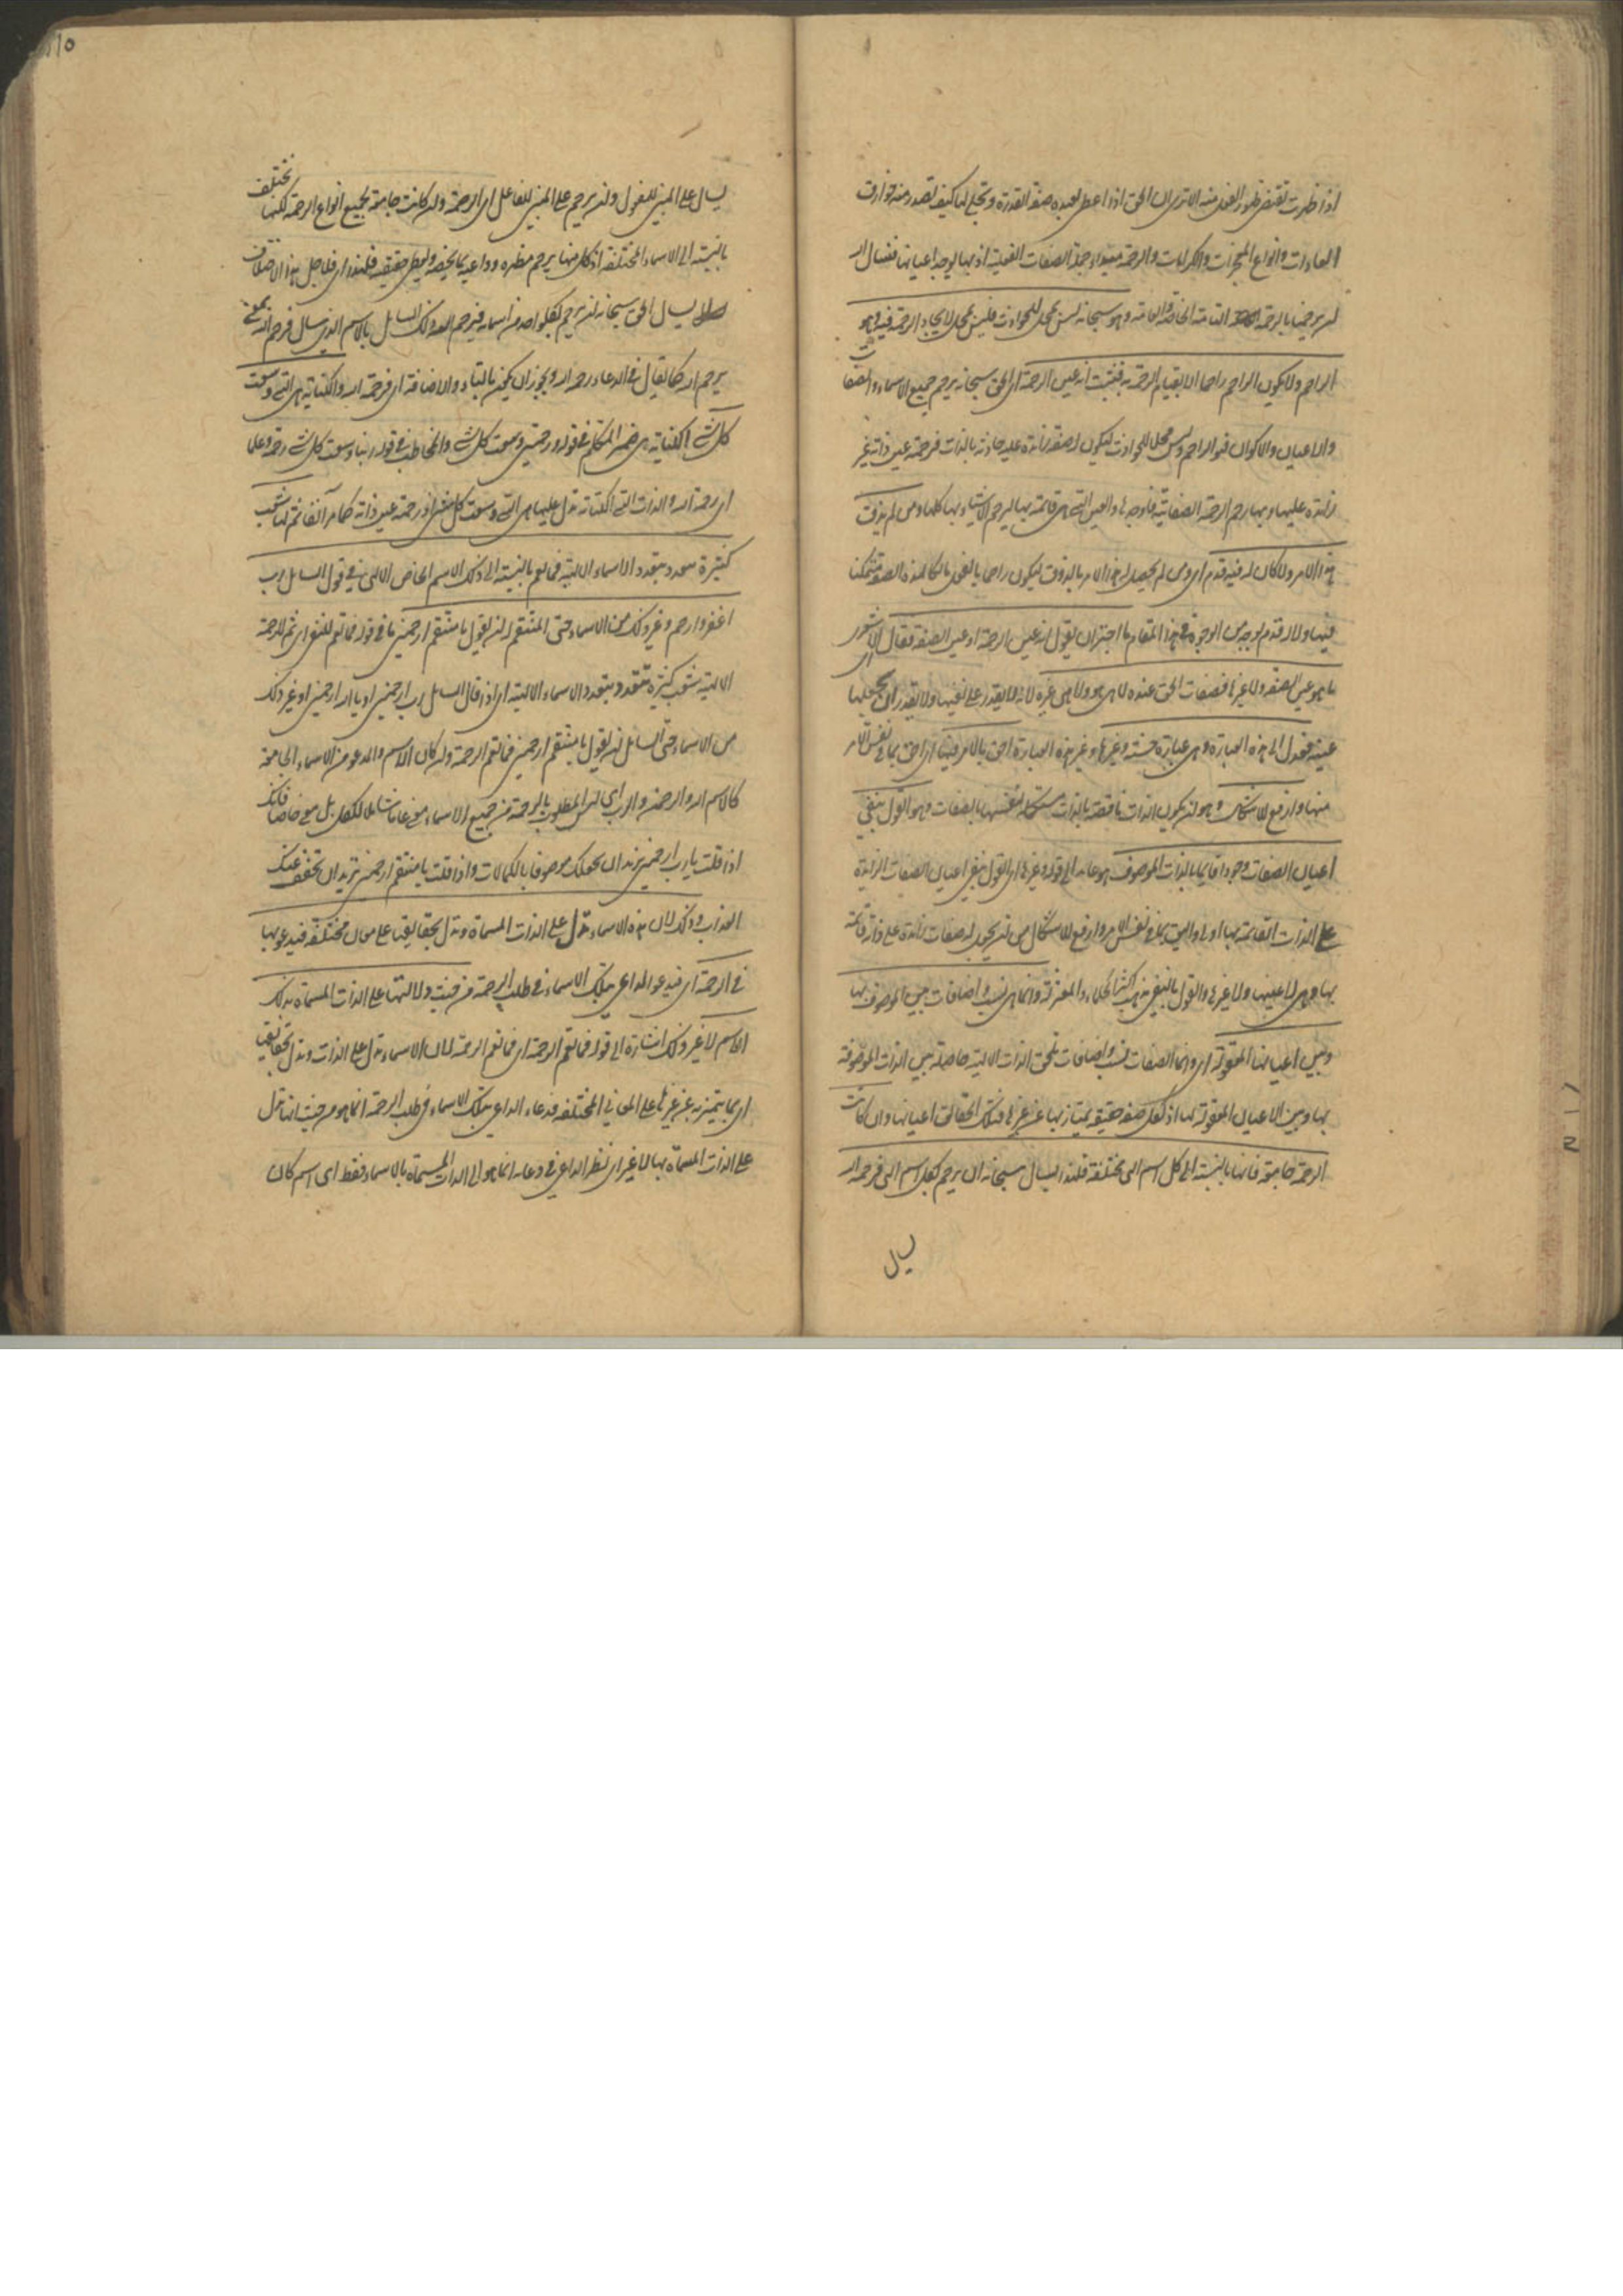 اذا ظهرت تقتضي ظهور الفعل منه الا ترى ان الحق اذا اعطى لعبده صفة القدرة وتجلى لها كيف تصدر منه خوارق
العادات وانواع المعجزات والكرامات والرحمة مبداء جملة الصفات الفعلية اذ بها يوجد اعيانها فنسال الله
ان يرحمنا بالرحمة التامة الخاصة والعامة وهو سبحانه ليس بمحل للحوادث فليس بمحل لايجاد الرحمة فيه وهو
الراحم ولا يكون الراحم راحما الا بقيام الرحمة به فثبت انه عين الرحمة اى الحق سبحانه يرحم جميع الاسماء والصفات
والاعيان والاكوان فهو الراحم وليس محلا للحوادث ليكون له صفة زائدة عليه حادثة بالذات فرحمته عين ذاته غير
زائدة عليها وبها رحم الرحمة الصفاتية فاوجدها والعين التي هي قائمة بها ليرحم الاشياء بها كلها ومن لم يذق
هذا الامر ولا كان له فيه قدم اى ومن لم يحصل له هذا الامر بالذوق ليكون راحما بالفعل مالكا لهذه الصفة متمكنا
فيها ولا له قدم بوجه من الوجوه في هذا المقام ما اجترا ان يقول انه عين الرحمة او عين الصفة فقال الاشعرى
ما هو عين الصفة ولا غيرها فصفات الحق عنده لا هي هو ولا هي غيره لانه لا يقدر على نفيها ولا يقدر ان يجعلها
عينه فعدل الى هذه العبارة وهي عبارة حسنة وغيرها وغير هذه العبارة احق بالامر منها اى احق بما في نفس الامر
منها وارفع للاشكال وهو ان يكون الذات ناقصة بالذات مستكملة لنفسها بالصفات وهو القول بنفي
اعيان الصفات وجودا قائما بذات الموصوف هو عائد الى قوله وغيرها اى القول بنفي اعيان الصفات الزائدة
على الذات القائمة بها اولى واليق بما في نفس الامر وارفع للاشكال من ان يكون له صفات زائدة على ذاته قائمة
بها وهي لا عينها ولا غيرها والقول بالنفي مذهب اكثر الحكماء والمعتزلة وانما هي نسب واضافات بين الموصوف بها
وبين اعيانها المعقولة اى وانما الصفات نسب واضافات تلحق الذات الالهية حاصلة بين الذات الموصوفة
بها وبين الاعيان المعقولة لها اذ لكل صفة حقيقة يمتاز بها عن غيرها فتلك الحقائق اعيانها وان كانت
الرحمة جامعة فانها بالنسبة الى كل اسم الهى مختلفة فلهذا يسال سبحانه ان يرحم بكل اسم الهى فرحمة الله
يسال
يسال على المبني للمفعول وان يرحم على المبني للفاعل اى الرحمة وان كانت جامعة لجميع انواع الرحمة لكنها تختلف
بالنسبة الى الاسماء المختلفة اذ كل منها يرحم مظهره وداعيه بما يخصه ويعطى حقيقته فلهذا اى فلاجل هذا الاختلاف
يسال الحق سبحانه ان يرحم بكل واحد من اسمائه فيرحم الله ذلك السايل بالاسم الذي يسال فرحم الله بمعنى
يرحم الله كما يقال في الدعاء رحمه الله ويجوز ان يكون بالتاء والاضافة اى فرحمة الله والكناية هي التي وسعت
كل شئ الكناية هي ضمير المتكلم في قوله ورحمتي وسعت كل شئ والمخاطب في قوله ربنا وسعت كل شئ رحمة وعلما
اى رحمة الله والذات التي الكناية تدل عليها هي التي وسعت كل شئ اذ رحمته عين ذاته كما مر آنفا ثم لها شعب
كثيرة تتعدد بتعدد الاسماء الالهية فما تعم بالنسبة الى ذلك الاسم الخاص الالهى في قول السائل رب
اغفر وارحم وغير ذلك من الاسماء حتى المنتقم له ان يقول يا منتقم ارحمني ما في قوله فما تعم للنفي اى ثم للرحمة
الالهية شعب كثيرة تتعدد بتعدد الاسماء الالهية اى اذا قال السائل رب ارحمني او يا الله ارحمني او غير ذلك
من الاسماء حتى السائل ان يقول يا منتقم ارحمني فما تعم الرحمة وان كان الاسم والمدعو من الاسماء الجامعة
كالاسم الله والرحمن والرب اى ليس المطلوب بالرحمة من جميع الاسماء معنى عاما شاملا للكل بل معنى خاصا فانك
اذا قلت يا رب ارحمني تريد ان يجعلك موصوفا بالكمالات واذا قلت يا منتقم ارحمني تريد ان تخفف عنك
العذاب وذلك لان هذه الاسماء تدل على الذات المسماة وتدل بحقائقها على معان مختلفة فيدعو بها
في الرحمة اى فيدعو الداعي بتلك الاسماء في طلب الرحمة من حيث دلالتها على الذات المسماة بذلك
الاسم لا غير وذلك اشارة الى قوله فما تعم الرحمة اى فما تعم الرحمة لان الاسماء تدل على الذات وتدل بحقائقها
اى بما يتميز به عن غيرها على المعاني المختلفة فدعاء الداعي بتلك الاسماء في طلب الرحمة انما هو من حيث انها تدل
على الذات المسماة بها لا غير اى نظر الداعي في دعائه انما هو الى الذات المسماة بالاسماء فقط اى اسم كان